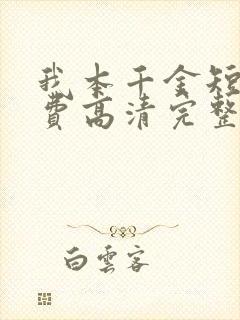 我本千金短
費高清完整
白雲客